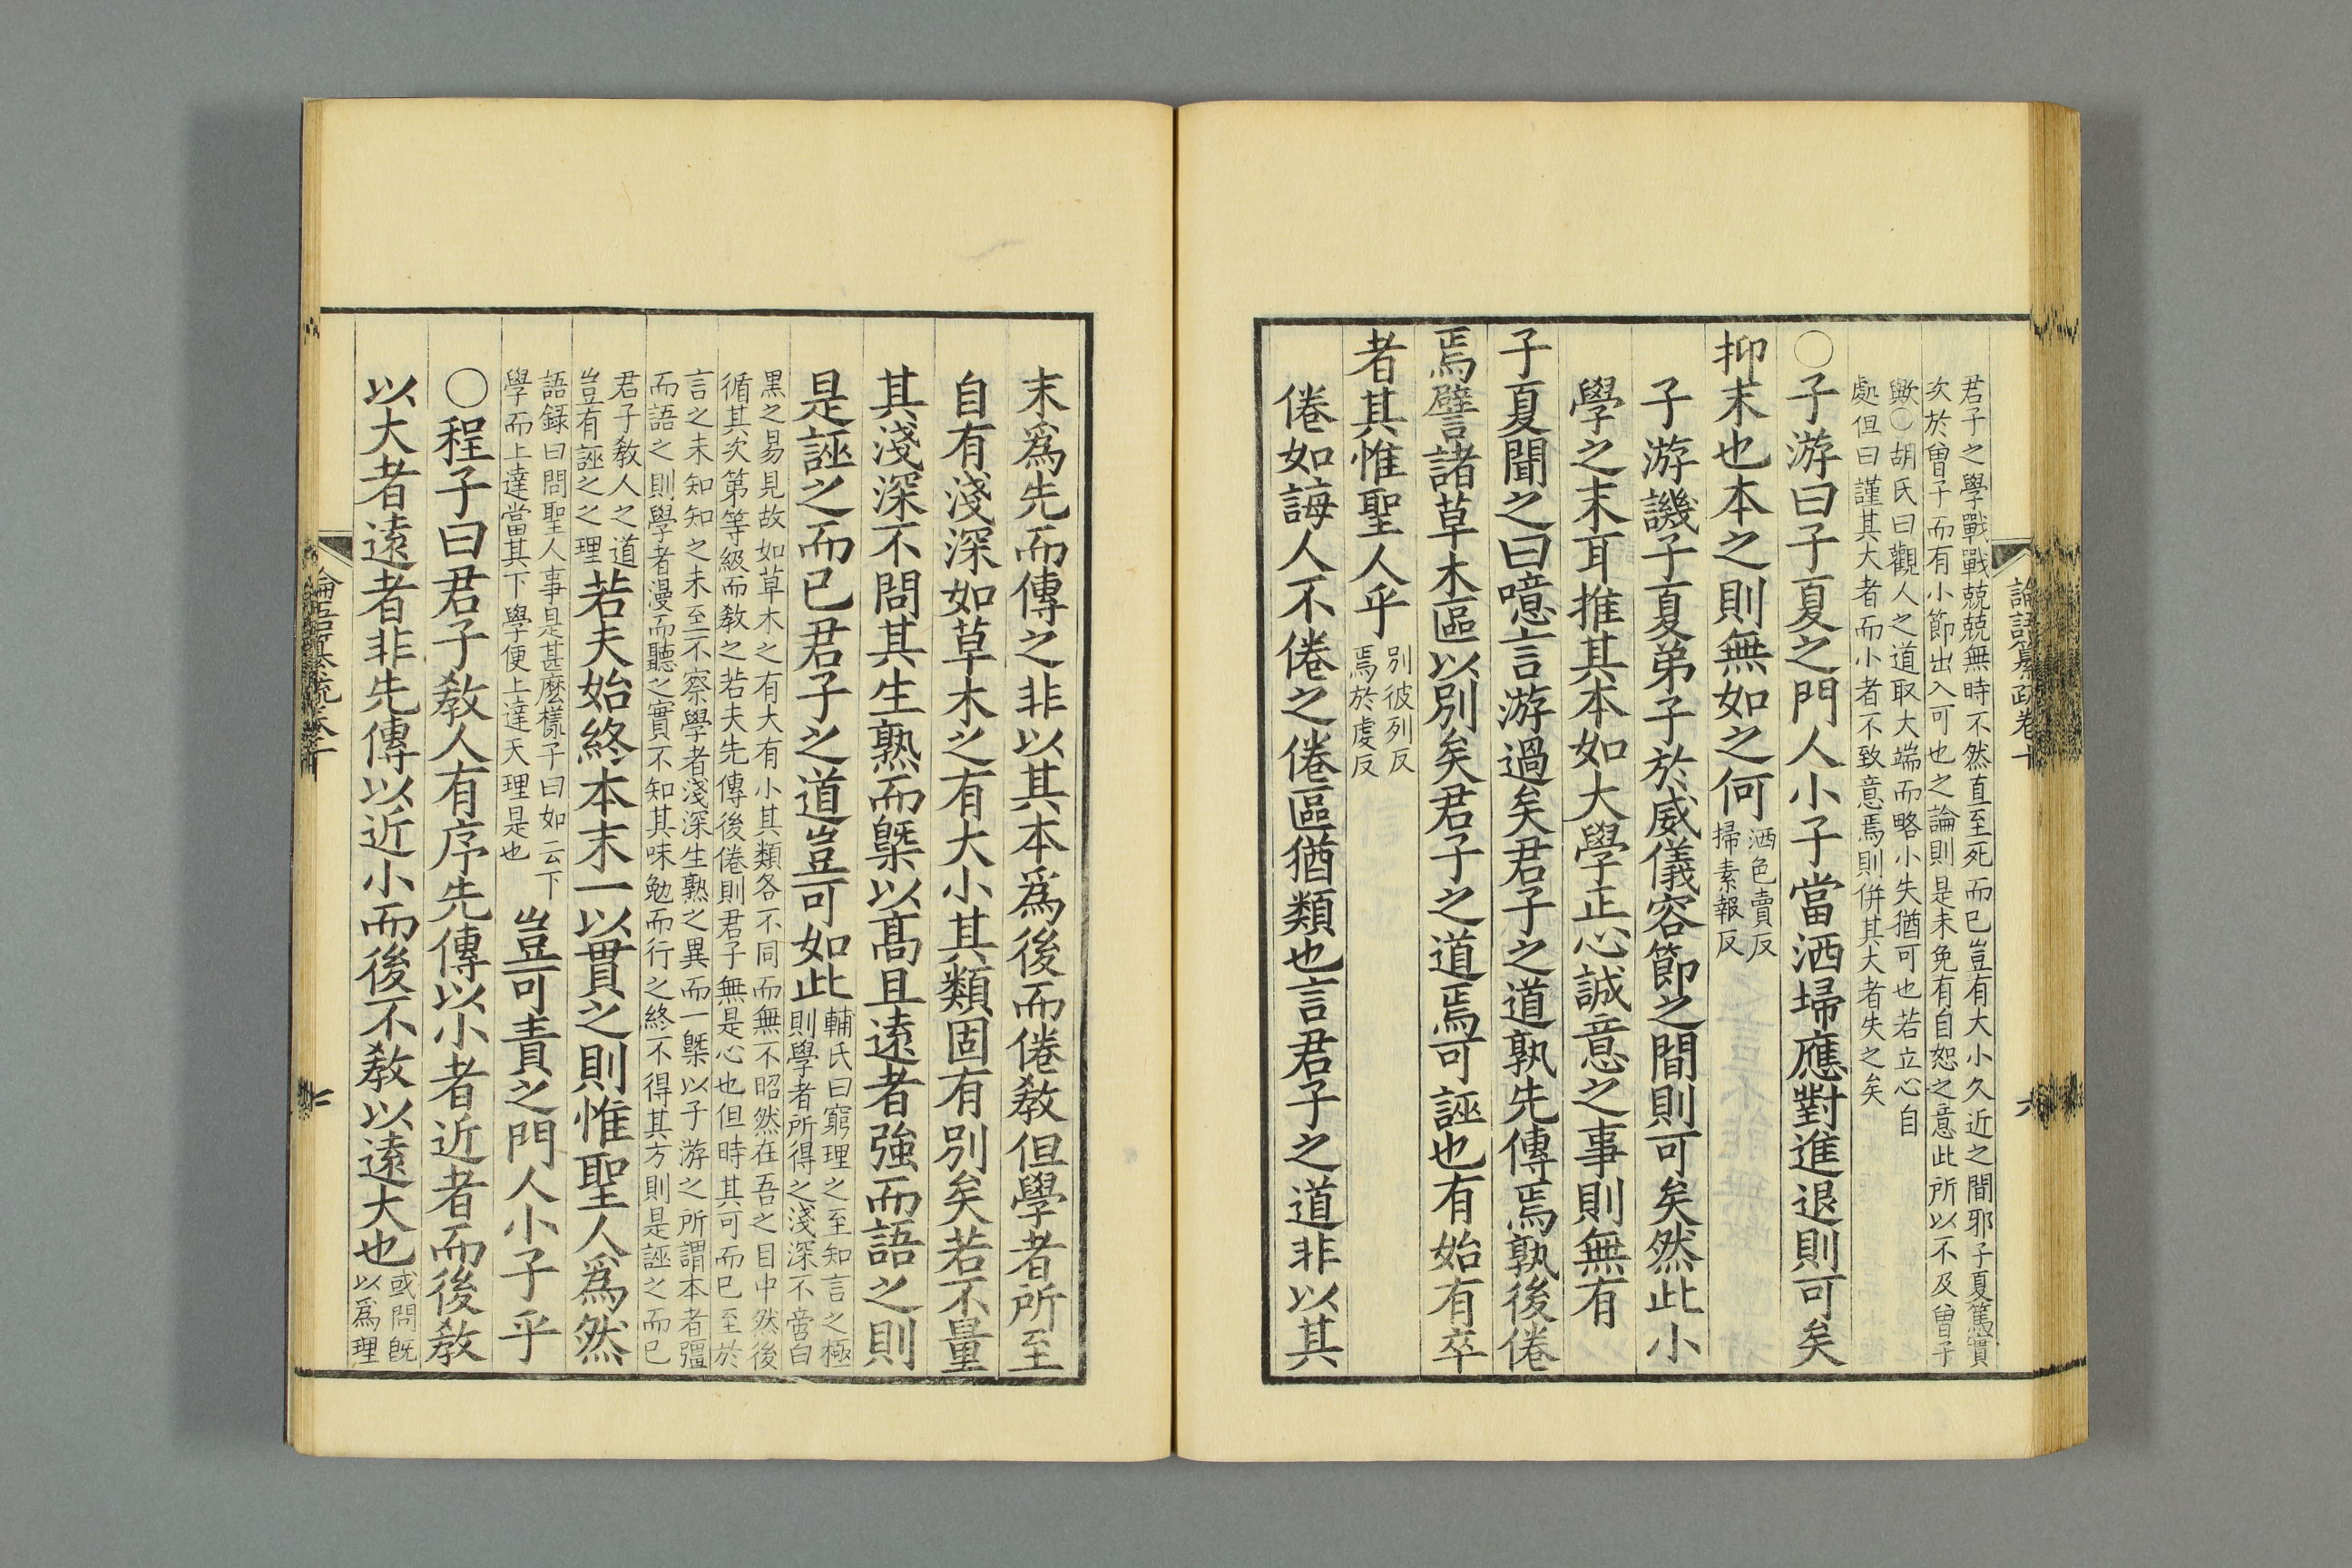 君子之學戰戰兢兢無時不然直至死而已豈有大小久近之間邪子夏篤實
次於曾子而有小節出入可也之論則是未免有自恕之意此所以不及曾子
歟○胡氏曰觀人之道取大端而略小失猶可也若立心自
處但曰謹其大者而小者不致意焉則併其大者失之矣
○子游曰子夏之門人小子當洒埽應對進退則可矣
抑末也本之則無如之何
洒色賣反
掃素報反
子游譏子夏弟子於威儀容節之間則可矣然此小
學之末耳推其本如大學正心誠意之事則無有
子夏聞之曰噫言游過矣君子之道孰先傳焉孰後倦
焉譬諸草木區以別矣君子之道焉可誣也有始有卒
者其惟聖人乎
別彼列反
焉於虔反
倦如誨人不倦之倦區猶類也言君子之道非以其
論語纂疏卷十
六
末爲先而傳之非以其本爲後而倦教但學者所至
自有淺深如草木之有大小其類固有別矣若不量
其淺深不問其生熟而槩以髙且遠者強而語之則
是誣之而已君子之道豈可如此
輔氏曰窮理之至知言之極
則學者所得之淺深不啻白
黒之易見故如草木之有大有小其類各不同而無不昭然在吾之目中然後
循其次第等級而教之若夫先傳後倦則君子無是心也但時其可而已至於
言之未知知之未至不察學者淺深生熟之異而一槩以子游之所謂本者彊
而語之則學者漫而聽之實不知其味勉而行之終不得其方則是誣之而已
君子教人之道
豈有誣之之理
若夫始終本末一以貫之則惟聖人爲然
語録曰問聖人事是甚麽樣子曰如云下
學而上達當其下學便上達天理是也
豈可責之門人小子乎
○程子曰君子教人有序先傳以小者近者而後教
以大者遠者非先傳以近小而後不教以遠大也
或問旣
以爲理
論語纂疏卷十